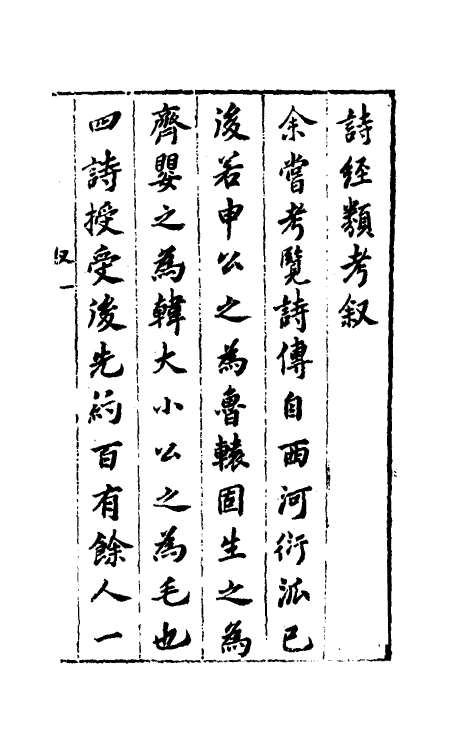 詩經類考叙
余嘗考覽詩傳自西河衍派已
後若申公之為魯轅固生之為
齊嬰之為韓大小公之為毛也
四詩授受後先約百有餘人一
叙一